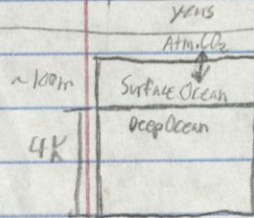 yens
Atm.CO2
~100m
Surface Ocean
Deep Ocean
4K